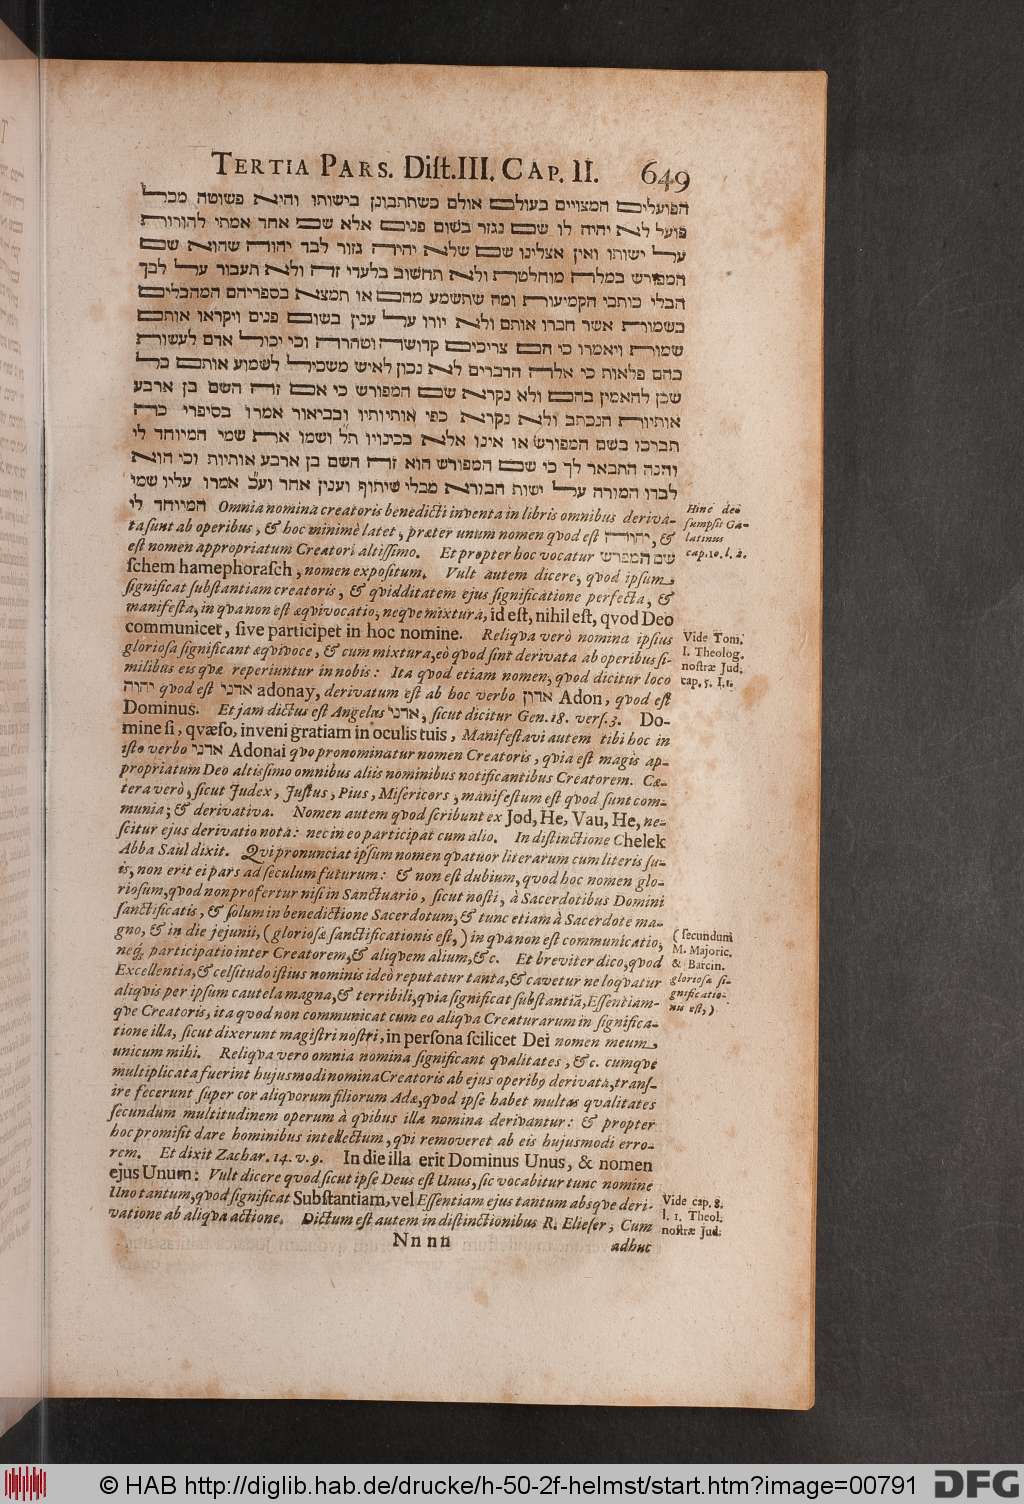 TERTIA PARS. Dist.III. CAP. II. 649
הפועלים המצויים בעולם אולם כשתתבונן בישותו והיא פשוטה מכל
פועל לא יהיה לו שם נגזר בשום פנים אלא שם אחד אמתי להורות
על ישותו ואין אצלינו שם שלא יהיה גזור לבד יהוה שהוא שם
המפורש במלה מוחלטת ולא תחשוב בלעדי זה ולא תעבור על לבך
הבלי כותבי הקמיעות ומה שתשמע מהם או תמצא בספריהם המהבלים
בשמות אשר חברו אותם ולא יורו על ענין בשום פנים ויקראו אותם
שמות ויאמרו כי הם צריכים קדושה וטהרה וכי יכול אדם לעשות
בהם פלאות כי אלה הדברים לא נכון לאיש משכיל לשמוע אותם כל
שכן להאמין בהם ולא נקרא שם המפורש כי אם זה השם בן ארבע
אותיות הנכתב ולא נקרא כפי אותיותיו ובביאור אמרו בסיפרי כה
תברכו בשם המפורש או אינו אלא בכינויו תל ושמו את שמי המיוחד לי
והנה התבאר לך כי שם המפורש הוא זה השם בן ארבע אותיות וכי הוא
לבדו המורה על ישות הבורא מבלי שיתוף וענין אחר ועכ אמרו עליו שמי
המיוחד לי Omnia nomina creatoris benedicti inventa in libris omnibus deriva-
ta sunt ab operibus, & hoc minimè latet, præter unum nomen qvod est יהוה, &
est nomen appropriatum Creatori altissimo. Et propter hoc vocatur שם המפרש
schem hamephorasch, nomen expositum. Vult autem dicere, qvod ipsum
significat substantiam creatoris, & qvidditatem ejus significatione perfecta, &
manifesta, in qva non est æqvivocatio, neqve mixtura, id est, nihil est, qvod Deo
communicet, sive participet in hoc nomine. Reliqva verò nomina ipsius
gloriosa significant æqvivoce, & cum mixtura, eò qvod sint derivata ab operibus si-
milibus eis qvæ reperiuntur in nobis: Ita qvod etiam nomen, qvod dicitur loco
יהוה qvod est אדני adonay, derivatum est ab hoc verbo אדון Adon, qvod est
Dominus. Et jam dictus est Angelus אדני, sicut dicitur Gen. 18. vers. 3. Do-
mine si, qvæso, inveni gratiam in oculis tuis, Manifestavi autem tibi hoc in
isto verbo אדני Adonai qvo pronominatur nomen Creatoris, qvia est magis ap-
propriatum Deo altissimo omnibus aliis nominibus notificantibus Creatorem. Cæ-
tera verò, sicut Judex, Justus, Pius, Misericors, manifestum est qvod sunt com-
munia; & derivativa. Nomen autem qvod scribunt ex Jod, He, Vau, He, ne-
scitur ejus derivatio nota: nec in eo participat cum alio. In distinctione Chelek
Abba Saul dixit. Qvi pronunciat ipsum nomen qvatuor literarum cum literis su-
is, non erit ei pars ad seculum futurum: & non est dubium, qvod hoc nomen glo-
riosum, qvod non profertur nisi in Sanctuario, sicut nosti, à Sacerdotibus Domini
sanctificatis, & solum in benedictione Sacerdotum, & tunc etiam à Sacerdote ma-
gno, & in die jejunii, (gloriosæ sanctificationis est,) in qva non est communicatio,
neq; participatio inter Creatorem, & aliqvem alium, &c. Et breviter dico, qvod
Excellentia, & celsitudo istius nominis ideò reputatur tanta, & cavetur ne loqvatur
aliqvis per ipsum cautela magna, & terribili, qvia significat substantiã, Essentiam-
qve Creatoris, ita qvod non communicat cum eo aliqva Creaturarum in significa-
tione illa, sicut dixerunt magistri nostri, in persona scilicet Dei nomen meum
unicum mihi. Reliqva vero omnia nomina significant qvalitates, &c. cumqve
multiplicata fuerint hujusmodi nomina Creatoris ab ejus operibꝰ derivata, trans-
ire fecerunt super cor aliqvorum filiorum Adæ, qvod ipse habet multas qvalitates
secundum multitudinem operum à qvibus illa nomina derivantur: & propter
hoc promisit dare hominibus intellectum, qvi removeret ab eis hujusmodi erro-
rem. Et dixit Zachar. 14. v. 9. In die illa erit Dominus Unus, & nomen
ejus Unum: Vult dicere qvod sicut ipse Deus est Unus, sic vocabitur tunc nomine
Uno tantum, qvod significat Substantiam, vel Essentiam ejus tantum absqve deri-
vatione ab aliqva actione. Dictum est autem in distinctionibus R. Elieser, Cum
Nnnn adhuc
Hinc deo
sumpsit Ga-
latinus
cap. 10. l. 2.
Vide Tom.
I. Theolog.
nostræ Jud.
cap. 5. l. 1.
(secundum
M. Majoric.
& Barcin.
gloriosa si-
gnificatio-
nis est,)
Vide cap. 8.
l. 1. Theol.
nostræ Jud.
© HAB http://diglib.hab.de/drucke/h-50-2f-helmst/start.htm?image=00791
DFG